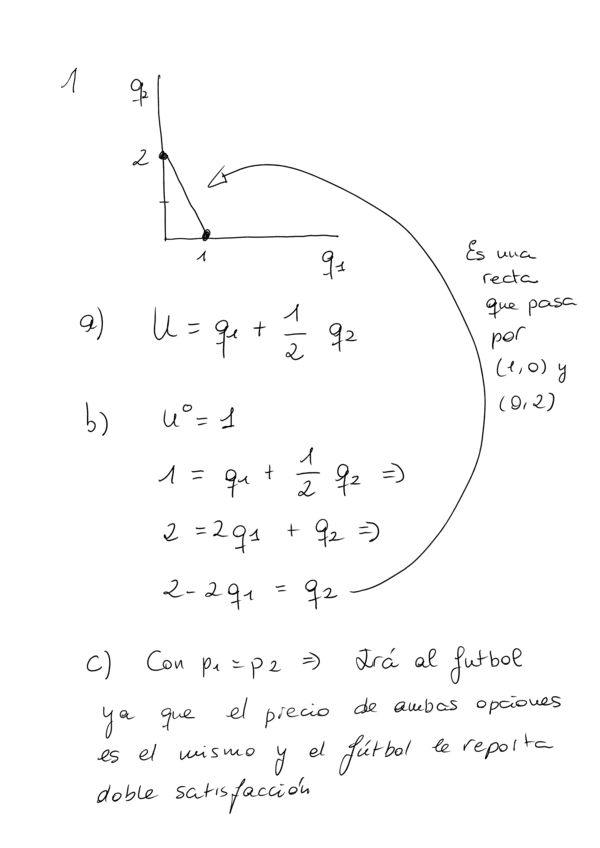 1
q2
2
1
q1
Es una
recta
que pasa
por
(1,0) y
(0,2)
a) U = q1 + 1/2 q2
b) u° = 1
1 = q1 + 1/2 q2 =>
2 = 2q1 + q2 =>
2 - 2q1 = q2
c) Con p1 = p2 => Irá al futbol
ya que el precio de ambas opciones
es el mismo y el fútbol le reporta
doble satisfacción